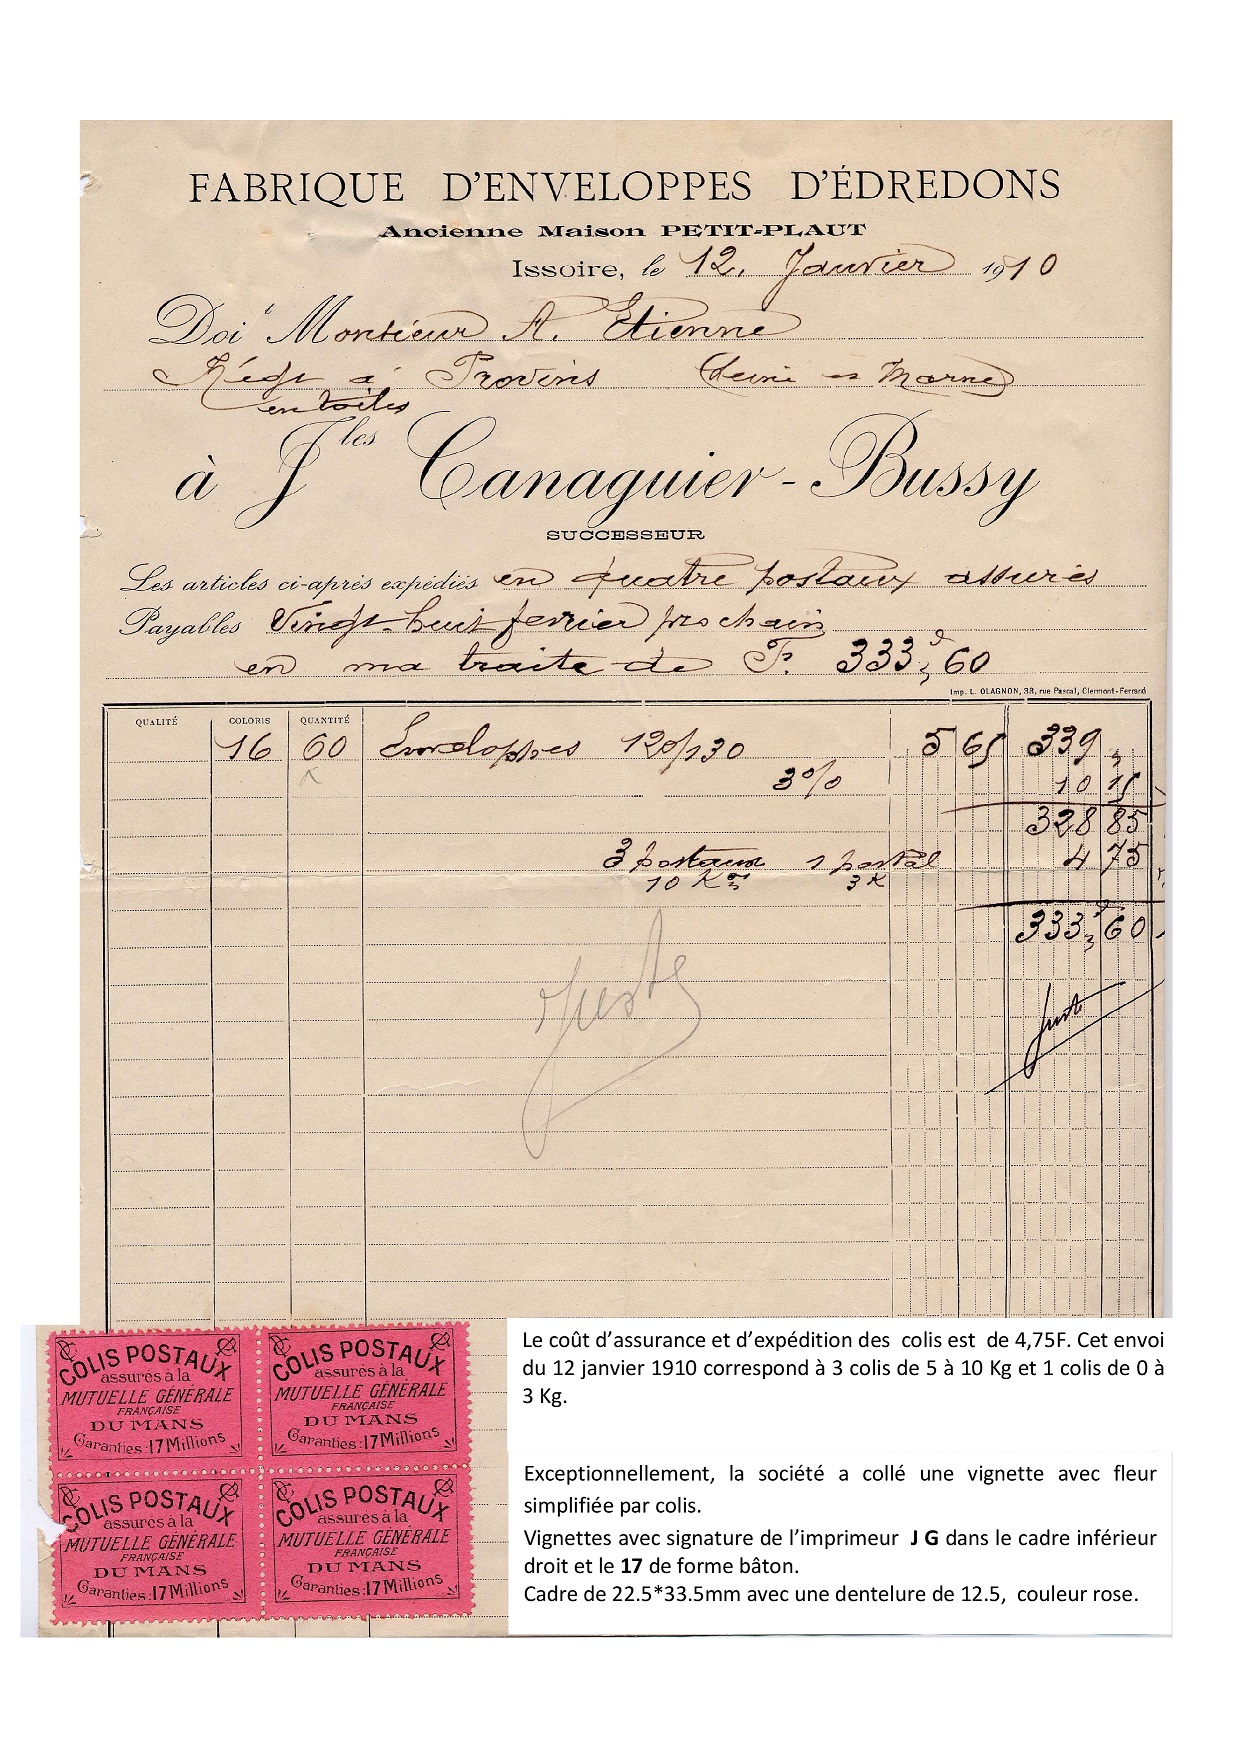 FABRIQUE D'ENVELOPPES D'ÉDREDONS
Ancienne Maison PETIT-PLAUT
Issoire, le 12. Janvier 1910
Doit Monsieur A. Etienne
Négt à Provins Seine et Marne
en toiles
à Jles Canaguier-Bussy
SUCCESSEUR
Les articles ci-après expédiés en quatre postaux assurés
Payables Vingt-huit fevrier prochain
en ma traite de F. 333,60
Imp. L. OLAGNON, 38, rue Pascal, Clermont-Ferrand
QUALITÉ COLORIS QUANTITÉ
16 60 Enveloppes 120/130 5 65 339 "
3% 10 15
328 85
3 postaux 1 postal 4 75
10 Kos 3 K
333,60
Juste
Juste
COLIS POSTAUX COLIS POSTAUX
assurés à la assurés à la
MUTUELLE GÉNÉRALE MUTUELLE GÉNÉRALE
FRANÇAISE FRANÇAISE
DU MANS DU MANS
Garanties : 17 Millions Garanties : 17 Millions
COLIS POSTAUX COLIS POSTAUX
assurés à la assurés à la
MUTUELLE GÉNÉRALE MUTUELLE GÉNÉRALE
FRANÇAISE FRANÇAISE
DU MANS DU MANS
Garanties : 17 Millions Garanties : 17 Millions
Le coût d’assurance et d’expédition des colis est de 4,75F. Cet envoi
du 12 janvier 1910 correspond à 3 colis de 5 à 10 Kg et 1 colis de 0 à
3 Kg.
Exceptionnellement, la société a collé une vignette avec fleur
simplifiée par colis.
Vignettes avec signature de l’imprimeur J G dans le cadre inférieur
droit et le 17 de forme bâton.
Cadre de 22.5*33.5mm avec une dentelure de 12.5, couleur rose.